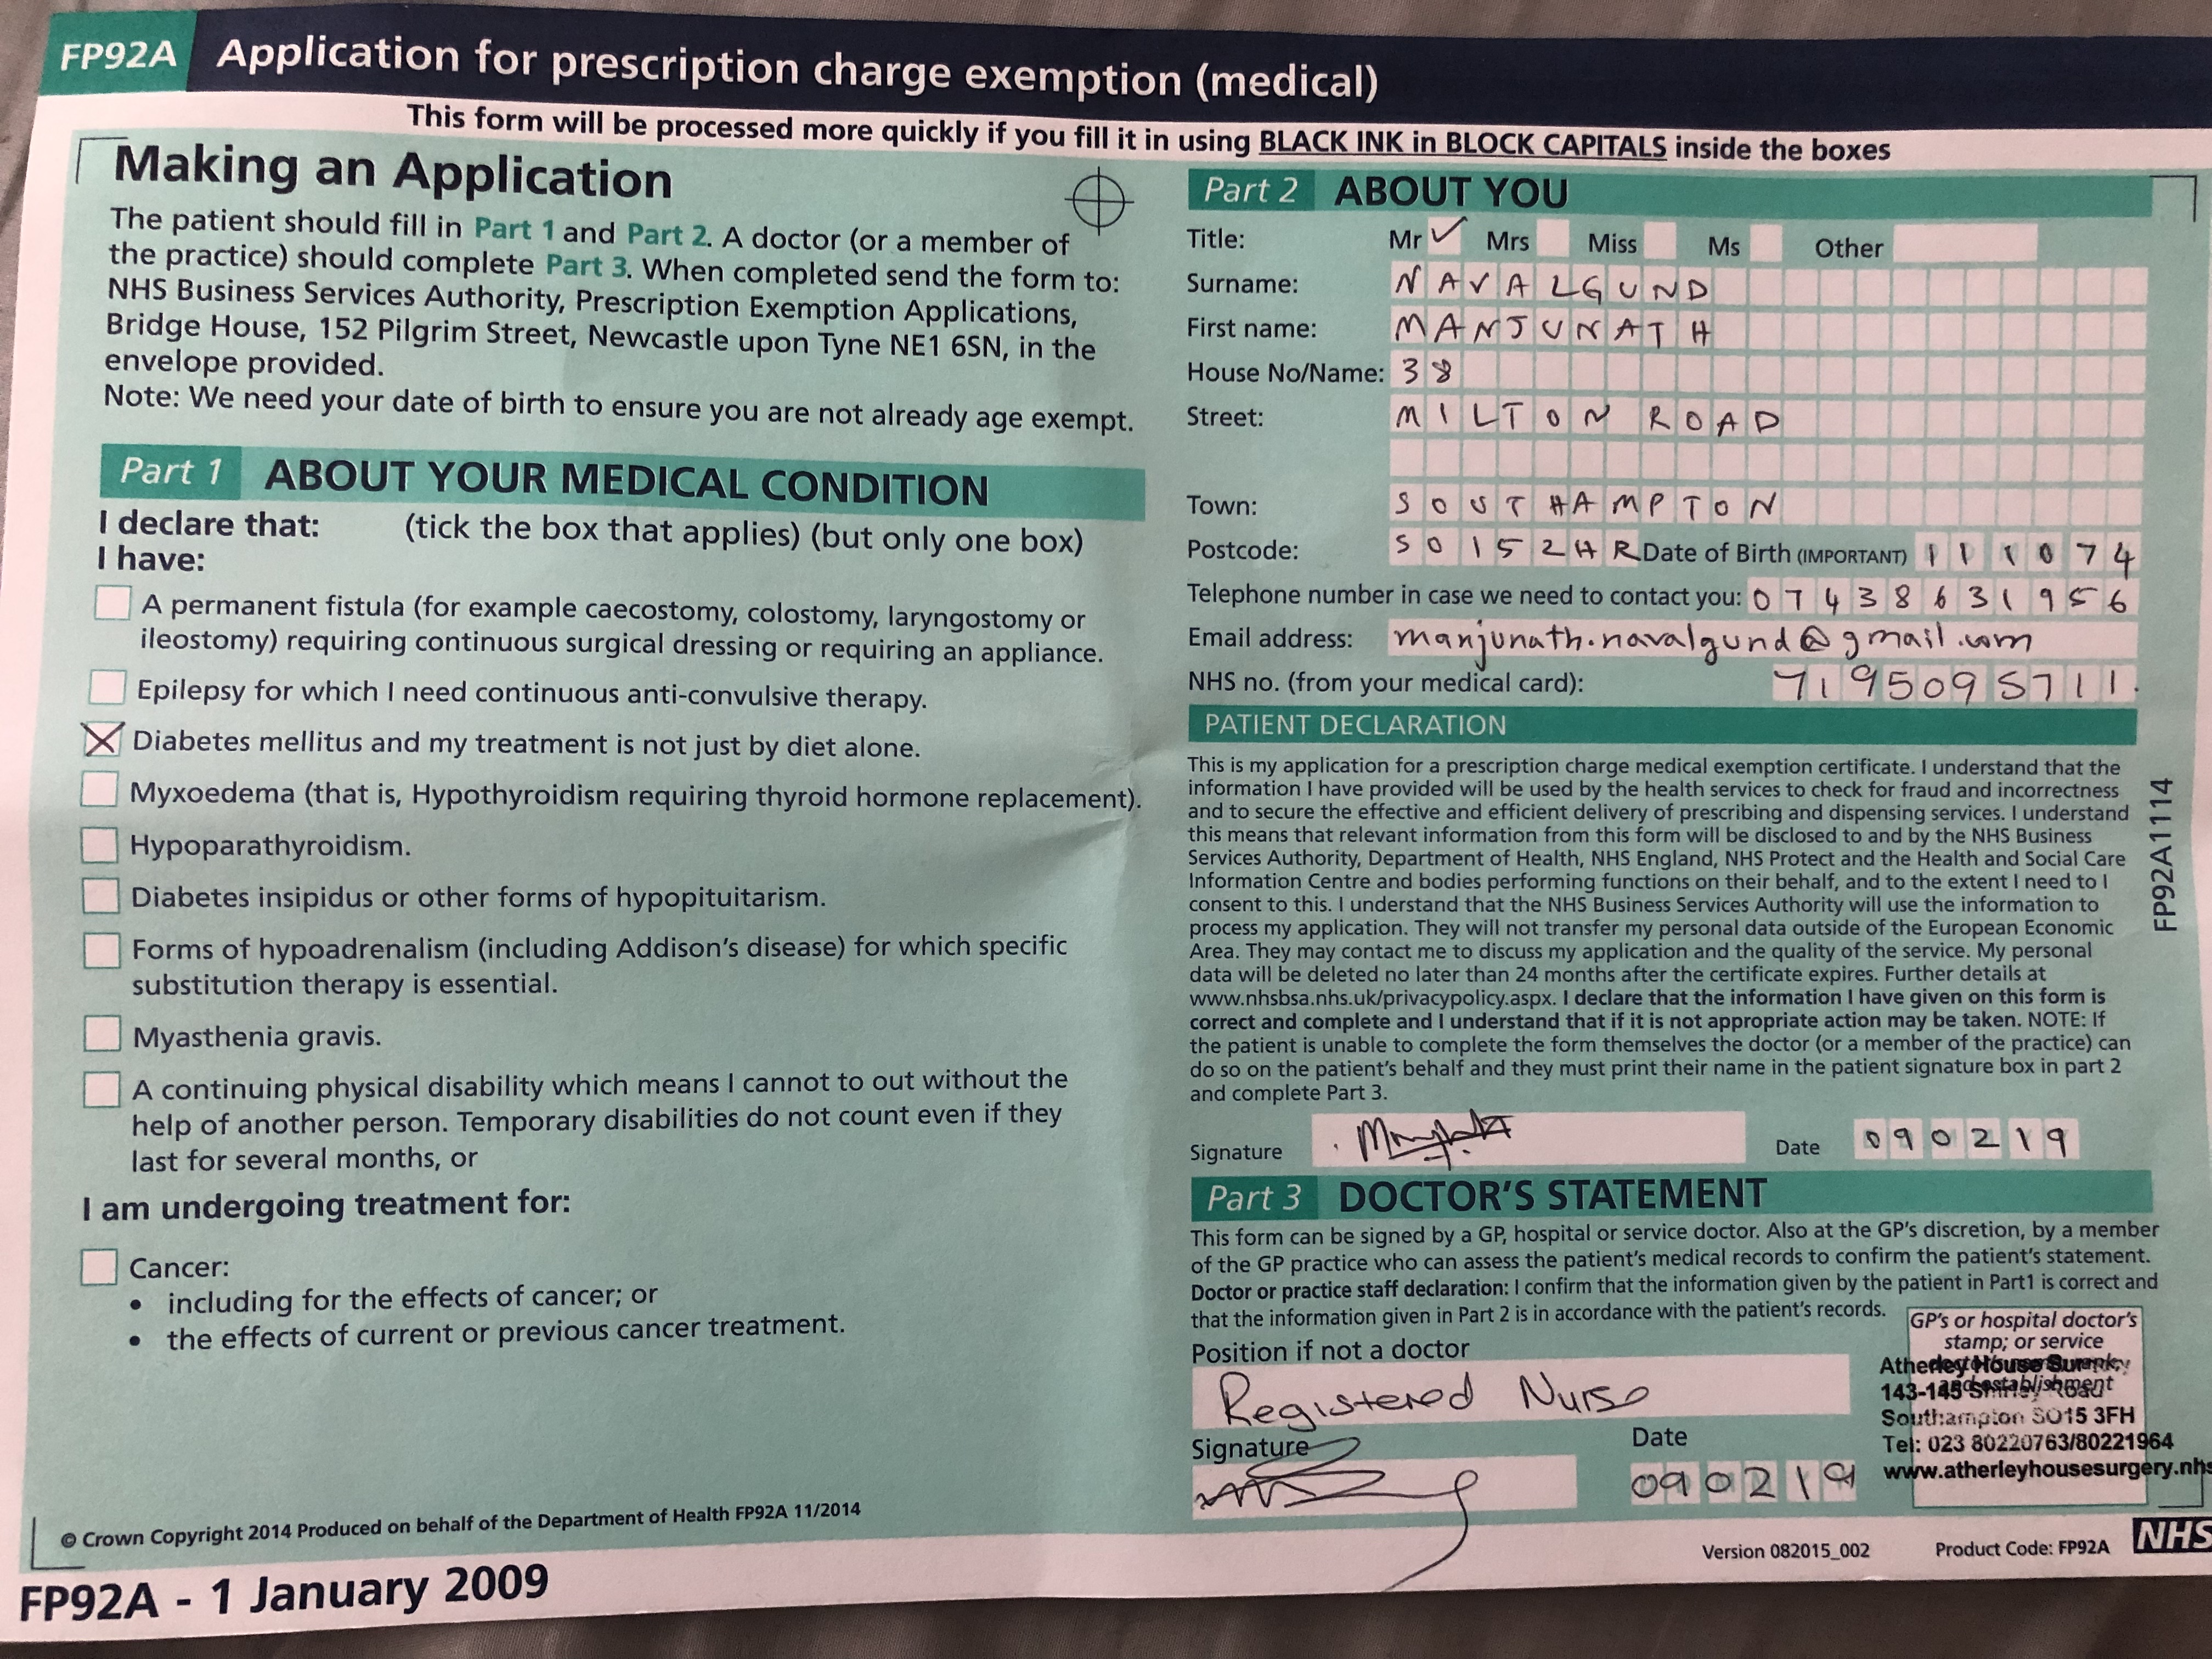 FP92A Application for prescription charge exemption (medical)
This form will be processed more quickly if you fill it in using BLACK INK in BLOCK CAPITALS inside the boxes
Making an Application
The patient should fill in Part 1 and Part 2. A doctor (or a member of
the practice) should complete Part 3. When completed send the form to:
NHS Business Services Authority, Prescription Exemption Applications,
Bridge House, 152 Pilgrim Street, Newcastle upon Tyne NE1 6SN, in the
envelope provided.
Note: We need your date of birth to ensure you are not already age exempt.
Part 1 ABOUT YOUR MEDICAL CONDITION
I declare that: (tick the box that applies) (but only one box)
I have:
A permanent fistula (for example caecostomy, colostomy, laryngostomy or
ileostomy) requiring continuous surgical dressing or requiring an appliance.
Epilepsy for which I need continuous anti-convulsive therapy.
X Diabetes mellitus and my treatment is not just by diet alone.
Myxoedema (that is, Hypothyroidism requiring thyroid hormone replacement).
Hypoparathyroidism.
Diabetes insipidus or other forms of hypopituitarism.
Forms of hypoadrenalism (including Addison's disease) for which specific
substitution therapy is essential.
Myasthenia gravis.
A continuing physical disability which means I cannot to out without the
help of another person. Temporary disabilities do not count even if they
last for several months, or
I am undergoing treatment for:
Cancer:
• including for the effects of cancer; or
• the effects of current or previous cancer treatment.
© Crown Copyright 2014 Produced on behalf of the Department of Health FP92A 11/2014
FP92A - 1 January 2009
Part 2 ABOUT YOU
Title: Mr ✓ Mrs Miss Ms Other
Surname: NAVALGUND
First name: MANJUNATH
House No/Name: 38
Street: MILTON ROAD
Town: SOUTHAMPTON
Postcode: SO15 2HR Date of Birth (IMPORTANT) 11 10 74
Telephone number in case we need to contact you: 07438631956
Email address: manjunath.navalgund@gmail.com
NHS no. (from your medical card): 7195095711
PATIENT DECLARATION
This is my application for a prescription charge medical exemption certificate. I understand that the
information I have provided will be used by the health services to check for fraud and incorrectness
and to secure the effective and efficient delivery of prescribing and dispensing services. I understand
this means that relevant information from this form will be disclosed to and by the NHS Business
Services Authority, Department of Health, NHS England, NHS Protect and the Health and Social Care
Information Centre and bodies performing functions on their behalf, and to the extent I need to I
consent to this. I understand that the NHS Business Services Authority will use the information to
process my application. They will not transfer my personal data outside of the European Economic
Area. They may contact me to discuss my application and the quality of the service. My personal
data will be deleted no later than 24 months after the certificate expires. Further details at
www.nhsbsa.nhs.uk/privacypolicy.aspx. I declare that the information I have given on this form is
correct and complete and I understand that if it is not appropriate action may be taken. NOTE: If
the patient is unable to complete the form themselves the doctor (or a member of the practice) can
do so on the patient's behalf and they must print their name in the patient signature box in part 2
and complete Part 3.
Signature Date 090219
Part 3 DOCTOR'S STATEMENT
This form can be signed by a GP, hospital or service doctor. Also at the GP's discretion, by a member
of the GP practice who can assess the patient's medical records to confirm the patient's statement.
Doctor or practice staff declaration: I confirm that the information given by the patient in Part1 is correct and
that the information given in Part 2 is in accordance with the patient's records.
Position if not a doctor
Registered Nurse
Signature Date
090219
GP's or hospital doctor's
stamp; or service
Atherley House Surgery
143-145
Southampton SO15 3FH
Tel: 023 80220763/80221964
www.atherleyhousesurgery.nhs
Version 082015_002 Product Code: FP92A NHS
FP92A1114